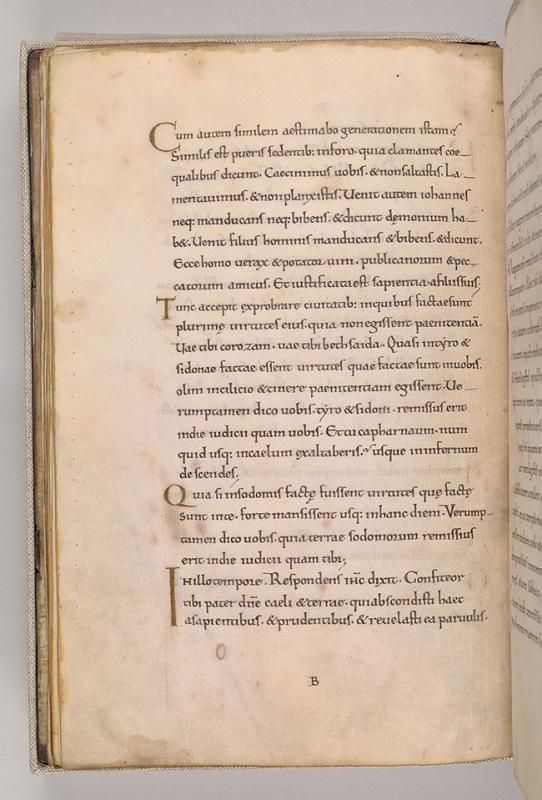 Cum autem similem aestimabo generationem istam?
Similis est pueris sedentib: inforo. quia clamantes coe_
qualibus dicunt. Caecinimus uobis. & nonsaltastis. La_
mentauimus. & nonplanxistis. Uenit autem iohannes
neq: manducans neq: bibens. & dicunt dęmonium ha_
b&. Uenit filius hominis manducans & bibens. & dicunt.
Ecce homo uerax & potator uini. publicanorum & pec_
catorum amicus. Et iustificata est sapientia afiliis suis;
Tunc accepit exprobrare ciuitatib: inquibus factaesunt
plurimę uirtutes eius. quia nonegissent paenitentiā.
Uae tibi corozam. uae tibi bethsaida. Quasi intyro &
sidonae factae essent uirtutes quae factae sunt inuobis.
olim incilicio & cinere paenitentiam egissent. Ue_
rumptamen dico uobis. tyro & sidoni. remissus erit
indie iudicii quam uobis. Et tu capharnaum. num
quid usq: incaelum exaltaberis? usque ininfernum
descendes;
Quia si insodomis factę fuissent uirtutes quę factę
sunt inte. forte mansissent usq: inhanc diem. Verump_
tamen dico uobis. quia terrae sodomorum remissius
erit indie iudicii quam tibi;
Inillotempore. Respondens ihc dixit. Confiteor
tibi pater dn̄e caeli & terrae. quiabscondisti haec
asapientibus. & prudentibus. & reuelasti ea paruulis.
B